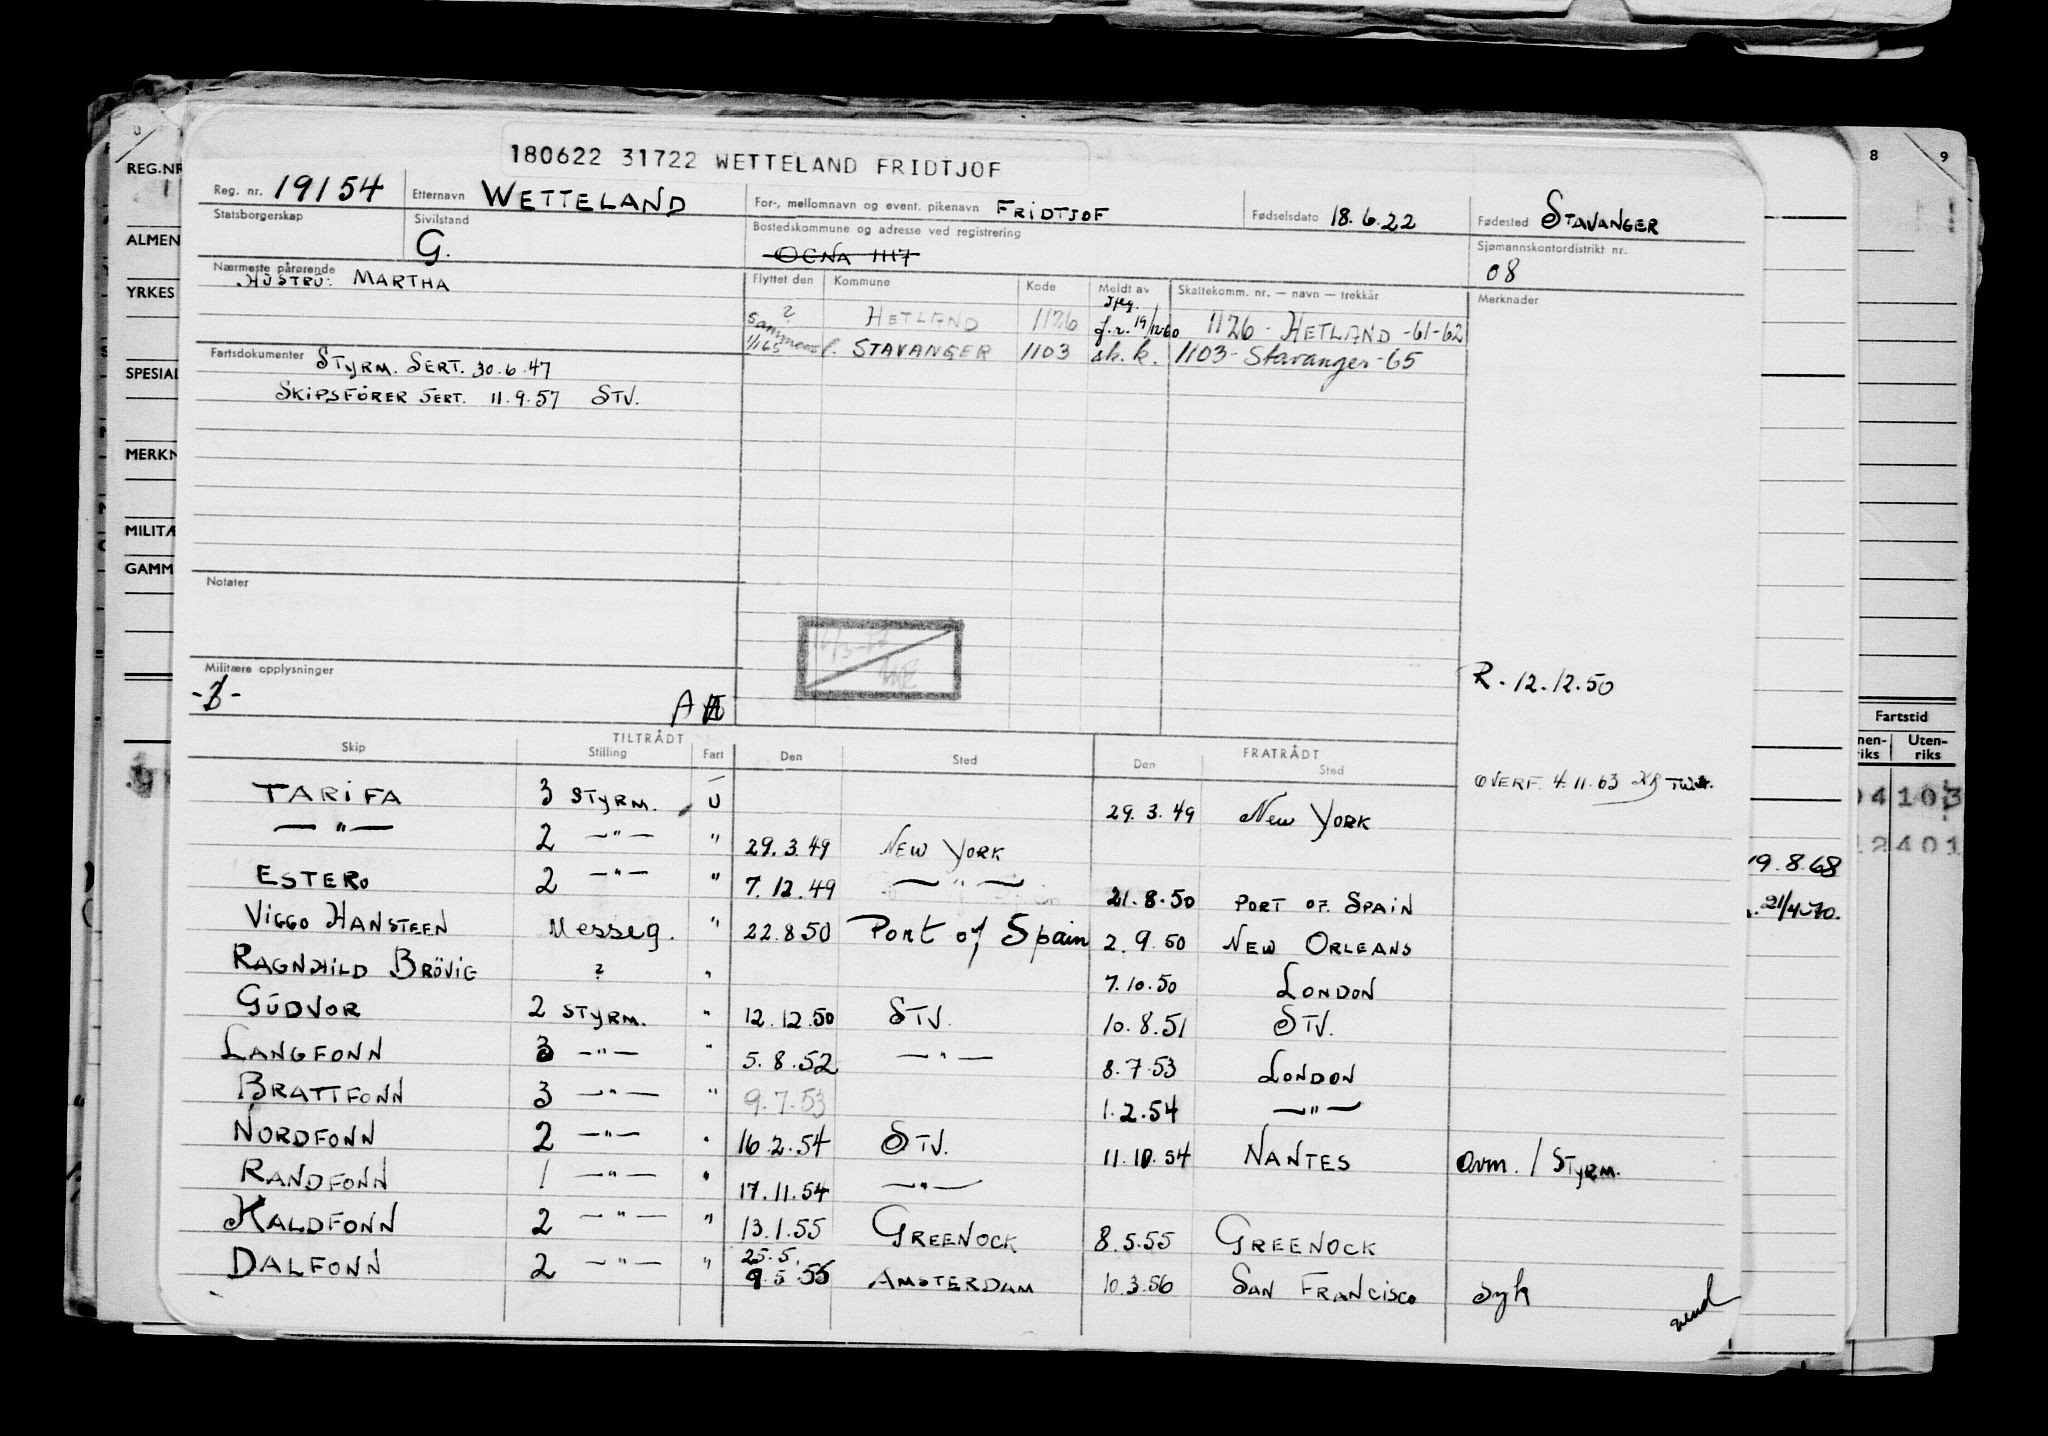 180622 31722 WETTELAND FRIDTJOF
Reg. nr. 19154 Etternavn WETTELAND For-, mellomnavn og event. pikenavn FRIDTJOF Fødselsdato 18.6.22 Fødested STAVANGER
Statsborgerskap Sivilstand G. Bostedskommune og adresse ved registrering OGNA 1117 Sjømannskontordistrikt nr. 08
Nærmeste pårørende HUSTRU: MARTHA
Flyttet den Kommune Kode Meldt av Skattekomm. nr. — navn — trekkår Merknader
? HETLAND 1126 f.r. 19/12-60 1126 - HETLAND -61-62
1/1 65 STAVANGER 1103 sk. k. 1103 - Stavanger - 65
Fartsdokumenter STYRM. SERT. 30.6.47
SKIPSFÖRER SERT. 11.9.57 STV.
Notater
Militære opplysninger
R. 12.12.50
A
TILTRÅDT FRATRÅDT
Skip Stilling Fart Den Sted Den Sted
OVERF. 4.11.63
TARIFA 3 STYRM. U 29.3.49 NEW YORK
— " — 2 — " — " 29.3.49 NEW YORK
ESTERO 2 — " — " 7.12.49 — " — 21.8.50 PORT OF SPAIN
VIGGO HANSTEEN Messeg. " 22.8.50 Port of Spain 2.9.50 NEW ORLEANS
RAGNHILD BRÖVIG ? " 7.10.50 LONDON
GUDVOR 2 STYRM. " 12.12.50 STV. 10.8.51 STV.
LANGFONN 3 — " — " 5.8.52 — " — 8.7.53 LONDON
BRATTFONN 3 — " — " 9.7.53 1.2.54 — " —
NORDFONN 2 — " — " 16.2.54 STV. 11.10.54 NANTES avm. / STYRM.
RANDFONN 1 — " — " 17.11.54 — " —
KALDFONN 2 — " — " 13.1.55 GREENOCK 8.5.55 GREENOCK
25.5.
DALFONN 2 — " — " 9.5.55 AMSTERDAM 10.3.56 SAN FRANCISCO syk
vend
REG.NR
ALMEN
YRKES
SPESIAL
MERKN
MILITÆ
GAMM
8 9
Fartstid
nen-riks Uten-riks
04 103
2401
19.8.68
21/4-70.